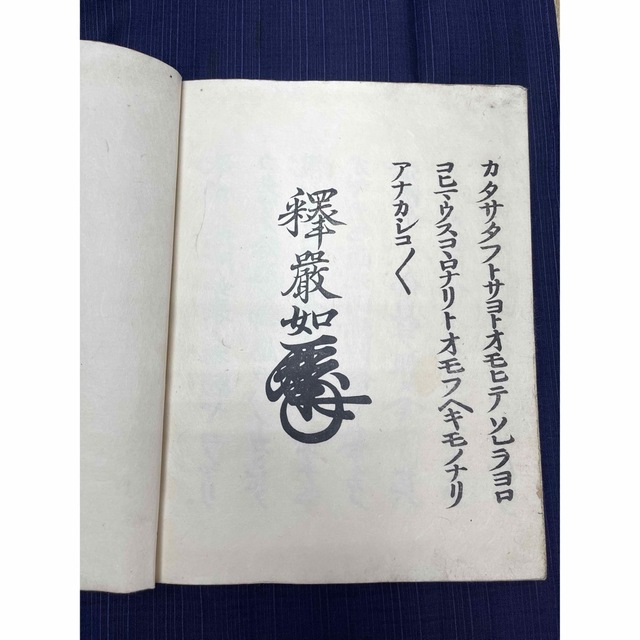 カタサタフトサヨトオモヒテソレヲヨロ
コヒマウスコヽロナリトオモフヘキモノナリ
アナカシコ〱
釋嚴如